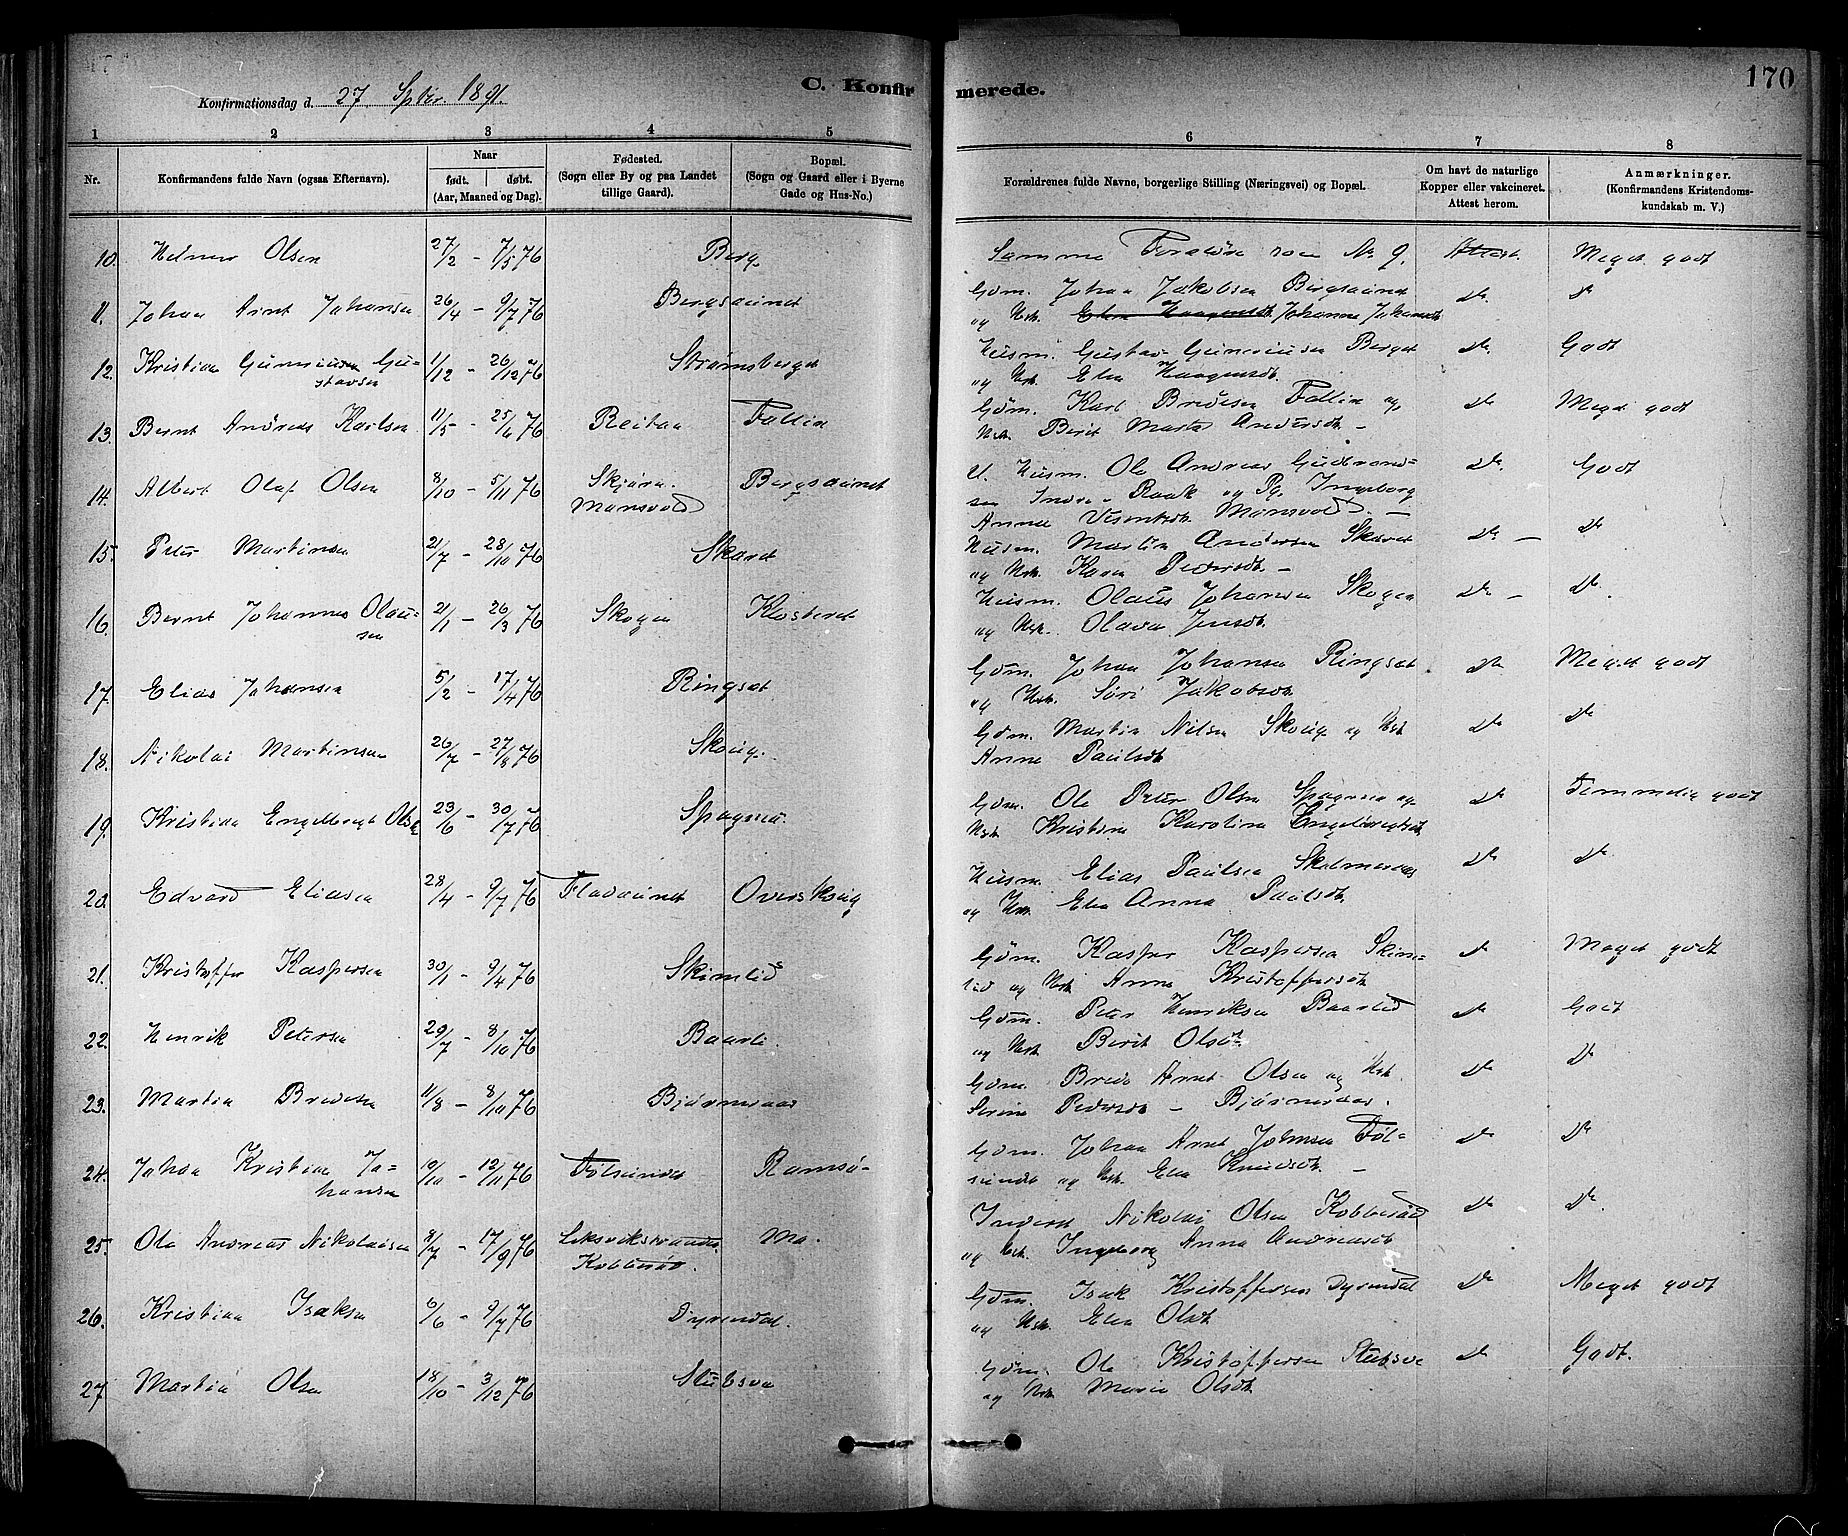 170
Konfirmationsdag d. 27 Sptbr. 1891.
C. Konfirmerede.
1 2 3 4 5 6 7 8
Nr.
Konfirmandens fulde Navn (ogsaa Efternavn).
Naar
født. døbt.
(Aar, Maaned og Dag).
Fødested.
(Sogn eller By og paa Landet
tillige Gaard).
Bopæl.
(Sogn og Gaard eller i Byerne
Gade og Hus-No.)
Forældrenes fulde Navne, borgerlige Stilling (Næringsvei) og Bopæl.
Om havt de naturlige
Kopper eller vakcineret.
Attest herom.
Anmærkninger.
(Konfirmandens Kristendoms-
kundskab m. V.)
10. Helmer Olsen 27/2 - 7/5 76 Berg Samme Forældre som No 9. Attest Meget godt
11. Johan Arnt Johansen 26/4 - 9/7 76 Bergsaunet Gdm. Johan Jakobsen Bergsaunet do do
og Hstr. Elen Haagensdt Johanna Johansdt
12. Kristian Gunerius Gu- 1/12 - 26/12 76 Strømsberget Husm. Gustav Guneriusen Berget do. Godt
stavsen og Hstr. Elen Haagensdt.
13. Bernt Andreas Karlsen 11/5 - 25/6 76 Reitan Follin Gdm. Karl Bredesen Follin og do Meget godt
Hstr. Berit Marta Andersdt. -
14. Albert Olaf Olsen 8/10 - 5/11 76 Skjørn Bergsaunet U. Husm. Ole Andreas Gudbrand- do. Godt
Mansvold sen Indre-Raak og Pg. Ingeborg
Anna Mansvold. -
15. Peter Martinsen 21/7 - 28/10 76 Skaret Husm. Martin Andersen Skaret do - do
og Hstr. Karen Pedersdt. -
16. Bernt Johannes Olau- 21/1 - 26/3 76 Skogen Klosteret Husm. Olaus Johansen Skogen do - do.
sen og Hstr. Olava Jensdt.
17. Elias Johansen 5/2 - 17/4 76 Ringset Gdm. Johan Johansen Ringset do Meget godt
og Hstr. Siri Jakobsdt.
18. Nikolai Martinsen 26/7 - 27/8 76 Skoug. Gdm. Martin Nilsen Skoug og Hst do do
Anne Paulsdt
19. Kristian Engelbregt Olsen 23/6 - 30/7 76 Spagmo Gdm. Ole Peter Olsen Spagmo og do Temmelig godt
Hstr. Kristine Karoline Engelbregtsdt
20. Edvard Eliasen 28/4 - 9/7 76 Fladaunet Overskoug Husm. Elias Paulsen do do.
og Hstr. Elen Anna Paulsdt.
21. Kristoffer Kaspersen 30/1 - 9/4 76 Skimlid Gdm. Kasper Kaspersen Skim- do Meget godt
lid og Hstr Anne Kristoffersdt.
22. Henrik Petersen 29/7 - 8/10 76 Baarli. Gdm. Peter Henriksen Baarlid do Godt
og Hstr. Berit Olsdt.
23. Martin Bredesen 11/8 - 8/10 76 Bjørneraas Gdm. Brede Arnt Olsen og Hst. do do
Serine Pedersdt - Bjørneraas.
24. Johan Kristian Jo- 10/10 - 12/11 76 Følsundet Ramsø- Gdm. Johan Arnt Johnsen Føl- do do
hansen sundet og Hstr. Elen Knudsdt. -
25. Ole Andreas Nikolaisen 8/7 - 17/9 76 Leksvikstranden Mo. Inderst Nikolai Olsen Kobberød do do.
Kobberød. og Hst. Ingeborg Anna Andreasdt
26. Kristian Isaksen 6/6 - 9/7 76 Dyrendal. Gdm. Isak Kristoffersen Dyrendal do Meget godt
og Hstr. Elen Olsdt
27. Martin Olsen 18/10 - 3/12 76 Stubsve Gdm. Ole Kristoffersen Stubsve do Godt.
og Hstr Marie Olsdt.